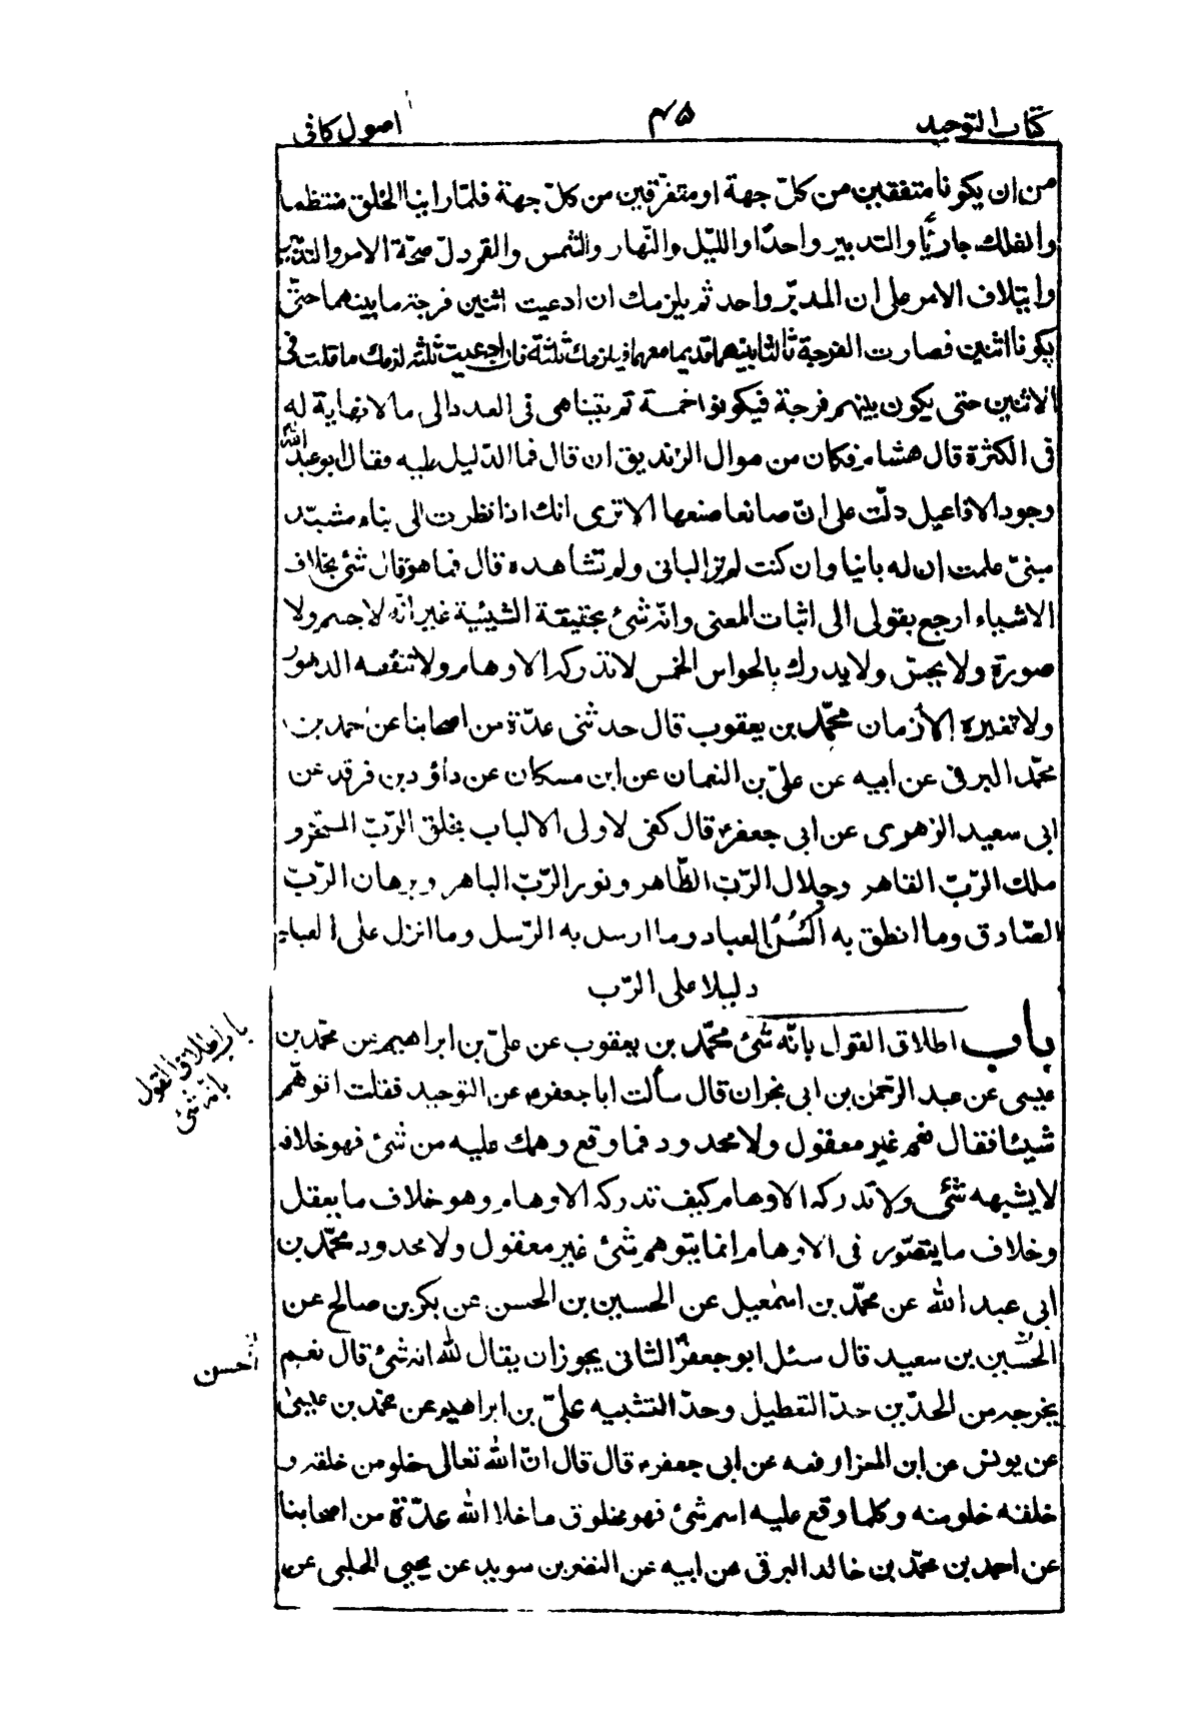 كتاب التوحيد
۴۵
اصول كافى
من ان يكونا متفقين من كلّ جهة او متفرّقين من كلّ جهة فلمّا راينا الخلق منتظما
والفلك جاريًا والتدبير واحدًا والليّل والنّهار والشّمس والقمر دلّ صحّة الامر والتدبير
وايتلاف الامر على ان المدبّر واحد ثم يلزمك ان ادعيت اثنين فرجة ما بينهما حتىّ
يكونا اثنين فصارت الفرجة ثالثا بينهما قديما معهما فيلزمك ثلثة فان ادعيت ثلثه لزمك ما قلت فى
الاثنين حتى يكون بينهم فرجة فيكونوا خمسة ثم يتناهى فى العدد الى ما لا نهاية له
فى الكثرة قال هشام فكان من سوال الزنديق ان قال فما الدّليل عليه فقال ابو عبد اللّٰه
وجود الافاعيل دلّت على انّ صانعا صنعها الا ترى انك اذا نظرت الى بناء مشيّد
مبنىّ علمت ان له بانيا وان كنت لم تر البانى ولم تشاهده قال فما هو قال شئ بخلاف
الاشياء ارجع بقولى الى اثبات المعنى وانّه شئ بحقيقة الشيئية غير انّه لا جسم ولا
صورة ولا يحسّ ولا يدرك بالحواس الخمس لا تدركه الاوهام ولا تنقصه الدهور
ولا تغيره الأزمان محمّد بن يعقوب قال حدثنى عدّة من اصحابنا عن احمد بن
محمّد البرقى عن ابيه عن علىّ بن النعمان عن ابن مسكان عن داؤد بن فرقد عن
ابى سعيد الزهرى عن ابى جعفر؏ قال كفى لاولى الالباب بخلق الربّ المسخّر و
ملك الرّبّ القاهر وجلال الرّبّ الظّاهر ونور الرّبّ الباهر وبرهان الرّبّ
الصّادق وما انطق به السُنُ العباد وما ارسل به الرّسل وما انزل على العباد
دليلا على الرّب
باب اطلاق القول بانّه شئ محمّد بن يعقوب عن علىّ بن ابراهيم عن محمّد بن
باب اطلاق القول
بانّه شئ
عيسى عن عبد الرّحمٰن بن ابى نجران قال سألت ابا جعفر؏ عن التوحيد فقلت اتوهّم
شيئا فقال نعم غير معقول ولا محدود فما وقع وهمك عليه من شئ فهو خلافه
لا يشبهه شئ ولا تدركه الاوهام كيف تدركه الاوهام وهو خلاف ما يعقل
وخلاف ما يتصّور فى الاوهام انما يتوهم شئ غير معقول ولا محدود محمّد بن
ابى عبد اللّٰه عن محمّد بن اسمٰعيل عن الحسين بن الحسن عن بكر بن صالح عن
الحسين بن سعيد قال سئل ابو جعفر الثانى يجوز ان يقال للّٰه انه شئ قال نعم
الحسن
يخرجه من الحدّين حدّ التعطيل وحدّ التشبيه علىّ بن ابراهيم عن محمد بن عيسىٰ
عن يونس عن ابن المعزا رفعه عن ابى جعفر؏ قال قال انّ اللّٰه تعالى خلو من خلقه و
خلقه خلو منه وكلما وقع عليه اسم شئ فهو مخلوق ما خلا اللّٰه عدّة من اصحابنا
عن احمد بن محمّد بن خالد البرقى عن ابيه عن النضر بن سويد عن يحيى الحلبى عن